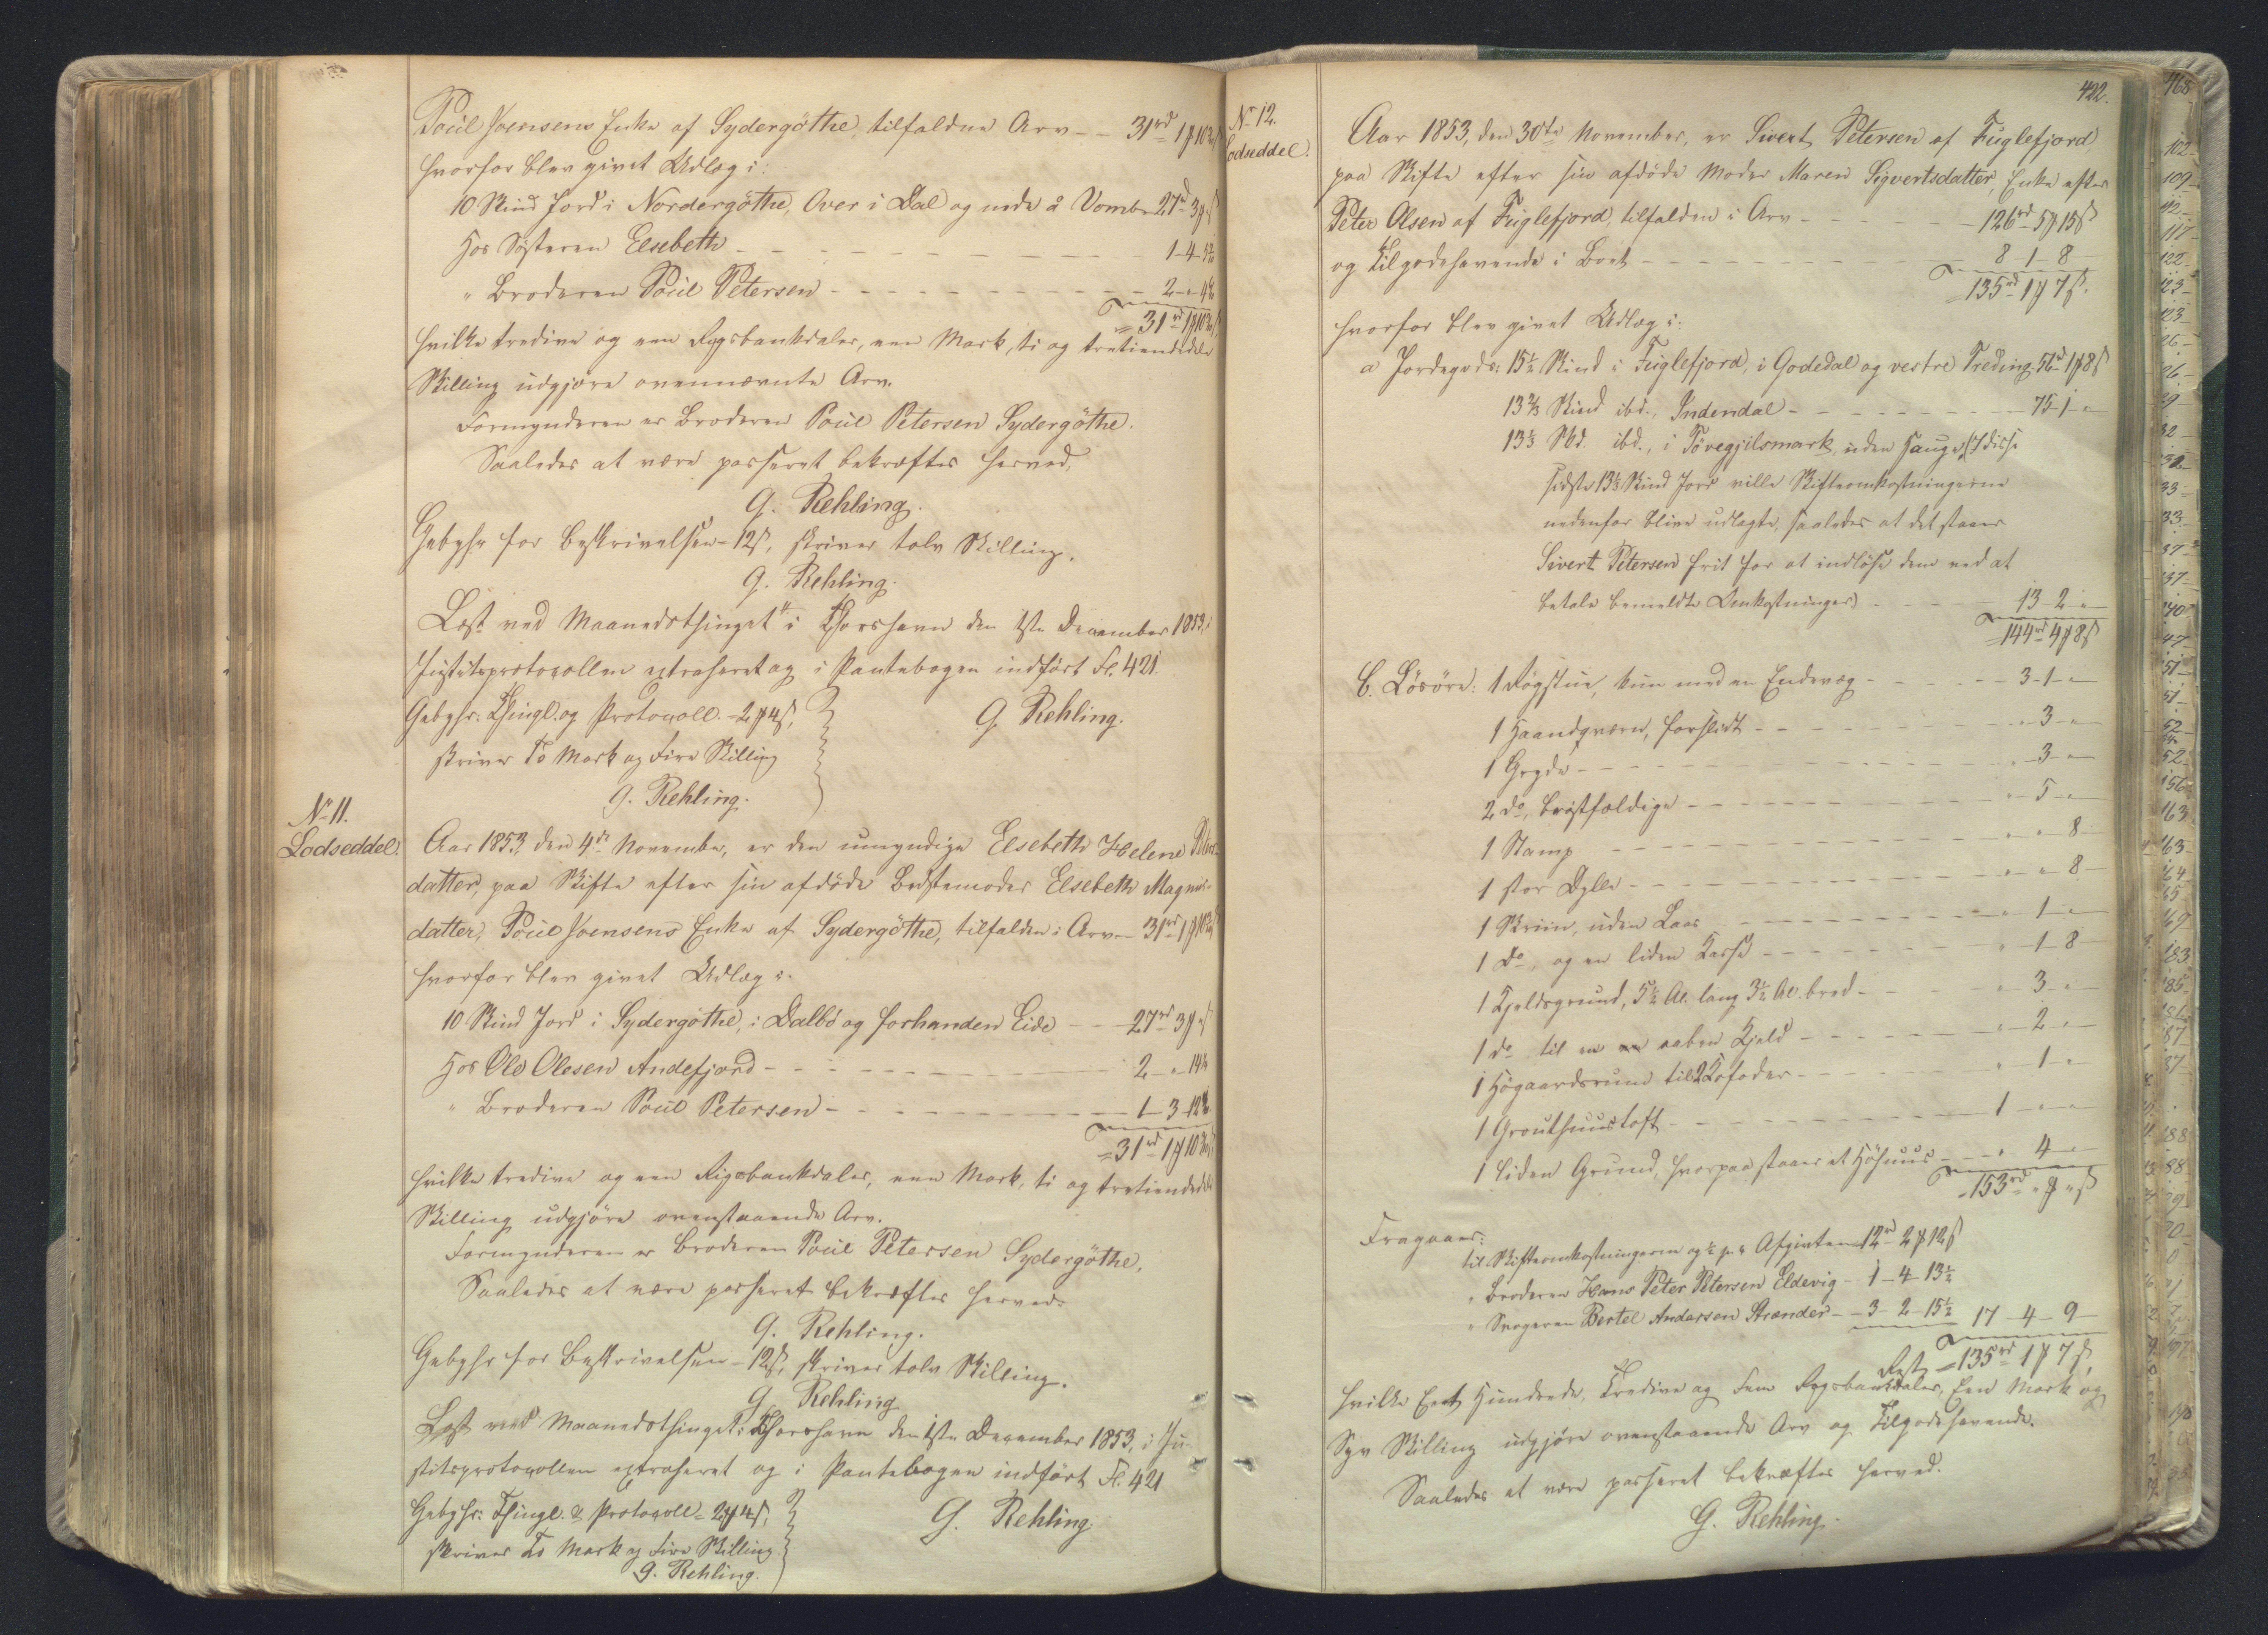 Poul Joensens Enke af Sydergöthe, tilfalden Arv - - 31rd 1 ℳ 10
hvorfor blev givet Udlæg i:
10 Skind Jord i Nordergöthe, Over i Dal og nede å Vomb 27rd 3 ℳ
Hos Søsteren Elsebeth - - - - 1-4-
" Broderen Poul Petersen - - - - 2-"-
= 31rd 1 ℳ 10
hvilke tredive og een Rigsbankdaler, een Mark, ti og tretiendedele
Skilling udgjøre ovennævnte Arv.
Formynderen er Broderen Poul Petersen Sydergöthe.
Saaledes at være passeret bekræftes herved,
G. Rehling.
Gebyhr for Beskrivelsen - 12 ß, skriver tolv Skilling.
G. Rehling.
Læst ved Maanedsthinget i Thorshavn den 1ste December 1853, i
Justitsprotocollen extraheret og i Pantebogen indført Fol. 421.
Gebyhr: Thingl. og Protocoll. - 2 ℳ 4 ß,
skriver To Mark og Fire Skilling
G. Rehling.
G. Rehling.
No 11.
Lodseddel.
Aar 1853, den 4de November, er den umyndige Elsebeth Helene Peters-
datter, paa Skifte efter sin afdöde Bedstemoder Elsebeth Magnus-
datter, Poul Joensens Enke af Sydergöthe, tilfalden i Arv - 31rd 1 ℳ 10
hvorfor blev givet Udlæg i:
10 Skind Jord i Sydergöthe, i Dalbö og forhanden Eide - - 27rd 3 ℳ " ß
Hos Ole Olesen Andefjord - - - - 2-"-14
" Broderen Poul Petersen - - - - 1-3-12
= 31rd 1 ℳ 10
hvilke tredive og een Rigsbankdaler, een Mark, ti og tretiendedele
Skilling udgjøre ovenstaaende Arv.
Formynderen er Broderen Poul Petersen Sydergöthe,
Saaledes at være passeret bekræftes herved.
G. Rehling.
Gebyhr for Beskrivelsen - 12 ß, skriver tolv Skilling.
G. Rehling
Læst ved Maanedsthinget i Thorshavn den 1ste December 1853, i Ju-
stitsprotocollen extraheret og i Pantebogen indført Fol. 421
Gebyhr: Thingl. & Protocoll - 2 ℳ 4 ß,
skriver To Mark og Fire Skilling
G. Rehling.
G. Rehling.
422.
No 12.
Lodseddel.
Aar 1853, den 30te November, er Sivert Petersen af Fuglefjord
paa Skifte efter sin afdöde Moder Maren Sigvertsdatter, Enke efter
Peter Olsen af Fuglefjord, tilfalden i Arv - - - 126rd 5 ℳ 15 ß
og Tilgodehavende i Boet - - - - 8-1-8
= 135rd 1 ℳ 7 ß.
hvorfor blev givet Udlæg i:
a Jordegods: 15½ Skind i Fuglefjord, i Godedal og vestre Treding 56rd 1 ℳ 8 ß
13⅔ Skind ibd., Indendal - - - - 75-1-"
13⅓ Skd. ibd., i Tövegjilsmark, uden Hauge, (I disse
sidste 13⅓ Skind Jord ville Skifteomkostningerne
nedenfor blive udlagte, saaledes at det staaer
Sivert Petersen frit for at indlöse dem ved at
betale bemeldte Omkostninger) - - - 13-2-"
= 144rd 4 ℳ 8 ß
b. Lösöre: 1 Røgstue, kun med een Endevæg - - - 3-1-"
1 Haandqværn, forslidt - - - "-3-"
1 Gryde - - - "-3-"
2 do, bröstfældige - - - "-5-"
1 Stamp - - - "-"-8
1 stor Dylle - - - "-"-8
1 Skriin, uden Laas - - - "-1-"
1 do, og en liden Kasse - - - "-1-8
1 Kjeldsgrund, 5½ Al. lang 3½ Al. bred - - "-3-"
1 do til en aaben Kjeld - - - "-2-"
1 Högaardsrum til 2 Kofoder - - - "-1-"
1 Grouthuustoft - - - 1-"-"
1 liden Grund, hvorpaa staaer et Höhuus - - "-4-"
= 153rd " ℳ " ß
Fragaaer:
til Skifteomkostningerne og ½ pC. Afgivten 12rd 2 ℳ 12 ß
" Broderen Hans Peter Petersen Eldevig - 1-4-13½
" Svogeren Bertel Andersen Strænder - - 3-2-15½ 17-4-9
Rest = 135rd 1 ℳ 7 ß,
hvilke Eet Hundrede, Tredive og Fem Rigsbankdaler, Een Mark og
Syv Skilling udgjöre ovenstaaende Arv og Tilgodehavende.
Saaledes at være passeret bekræftes herved.
G. Rehling.